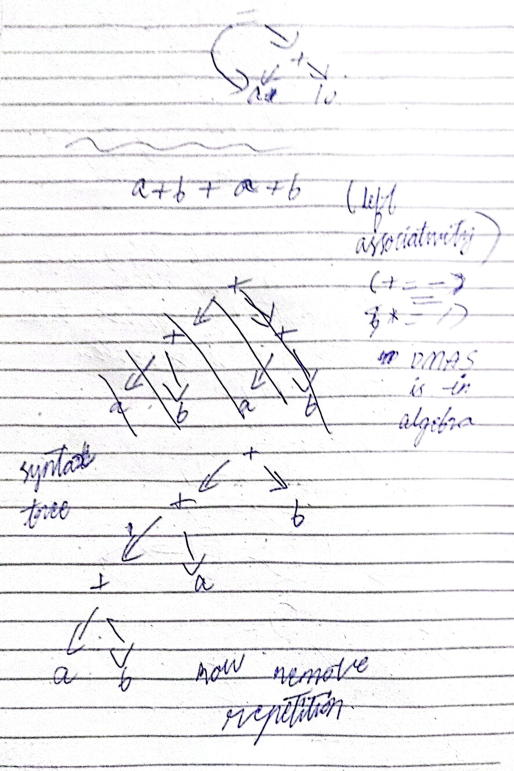 =
+
a + b + a + b
(left
associativity)
(+ = -)
* = /
no DMAS
is in
algebra
+
+ +
a b a b
syntax
tree
+
+ b
+ a
a b
now remove
repetition.